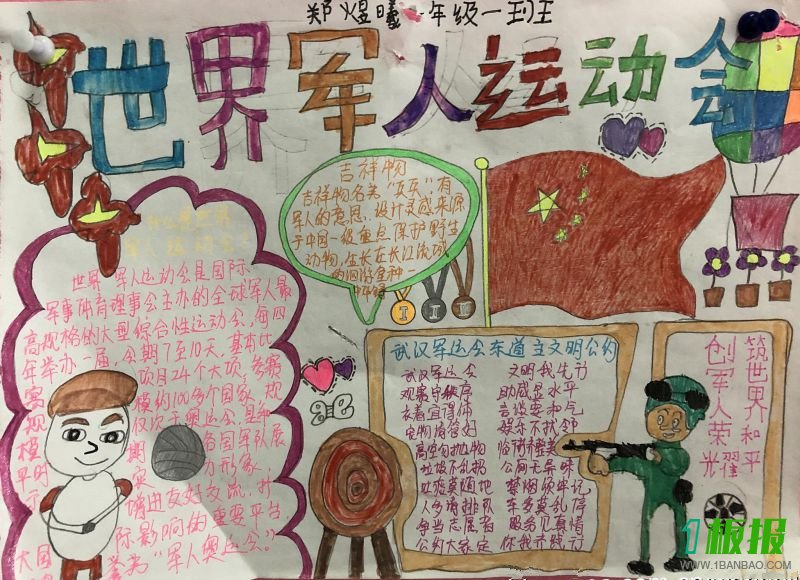 郑煜曦 一年级一班
世界军人运动会
什么是世界
军人运动会?
世界军人运动会是国际
军事体育理事会主办的全球军人最
高规格的大型综合性运动会,每四
年举办一届,会期7至10天,基本比
项目24个大项,参赛
规模约100多个国家,规
模仅次于奥运会,是和
平时期各国军队展
示
增进友好交流,扩
大国际影响的重要平台
誉为“军人奥运会。”
吉祥物
吉祥物名为“兵兵”,有
军人的意思,设计灵感来源
于中国一级重点保护野生
动物,生长在长江流域
的洄游鱼种一
中华鲟
武汉军运会东道主文明公约
武汉军运会 文明我先行
观赛守秩序 助威显水平
衣着宜得体 言谈要和气
宠物请管好 娱乐不扰邻
高空勿抛物
垃圾不乱扔 公厕无异味
禁烟须牢记
人多请排队 车多莫乱停
争当志愿者 服务见真情
公约大家定 你我齐践行
筑世界和平
创军人荣光耀
1板报
WWW.1BANBAO.COM